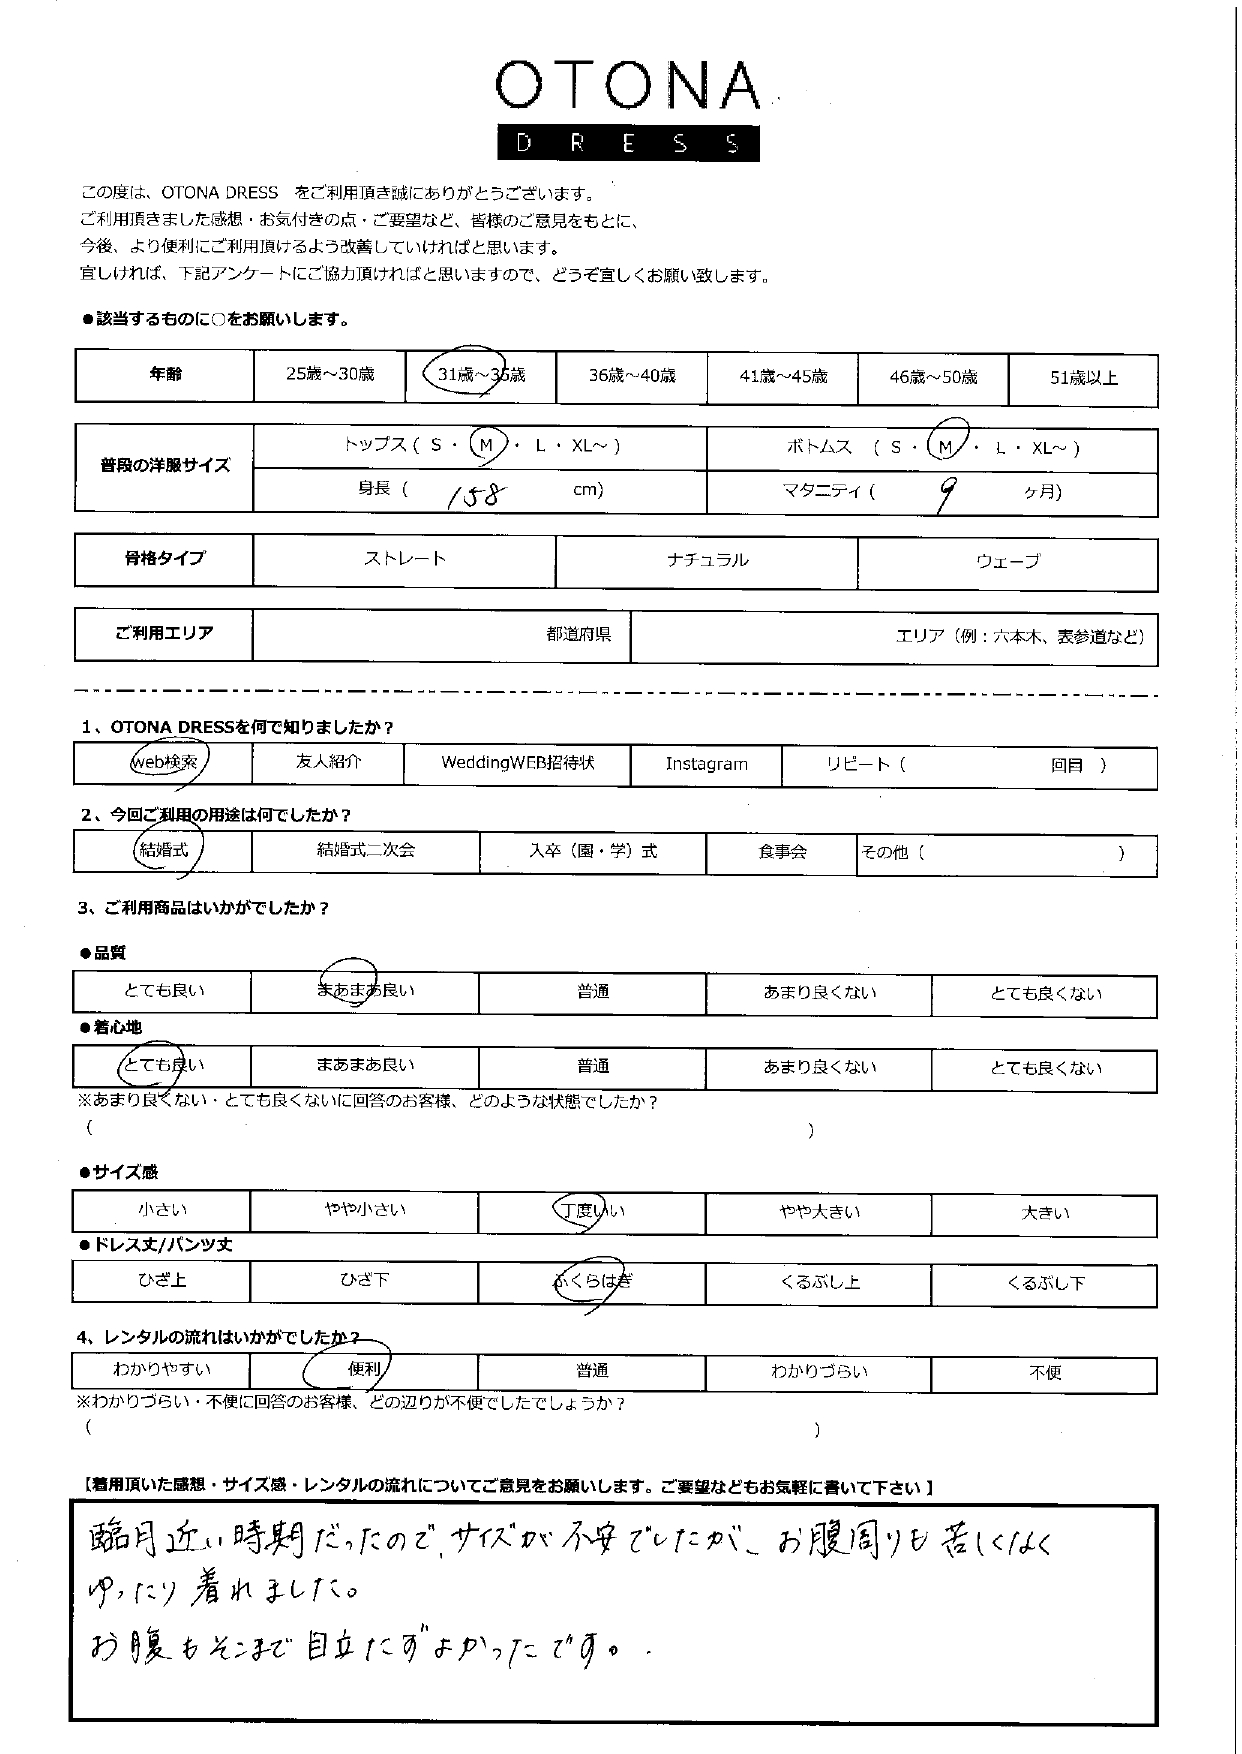 OTONA
DRESS
この度は、OTONA DRESS をご利用頂き誠にありがとうございます。
ご利用頂きました感想・お気付きの点・ご要望など、皆様のご意見をもとに、
今後、より便利にご利用頂けるよう改善していければと思います。
宜しければ、下記アンケートにご協力頂ければと思いますので、どうぞ宜しくお願い致します。
●該当するものに○をお願いします。
年齢 25歳～30歳 31歳～35歳 36歳～40歳 41歳～45歳 46歳～50歳 51歳以上
普段の洋服サイズ トップス（ S ・ M ・ L ・ XL～ ） ボトムス （ S ・ M ・ L ・ XL～ ）
身長（ 158 cm） マタニティ（ 9 ヶ月）
骨格タイプ ストレート ナチュラル ウェーブ
ご利用エリア 都道府県 エリア（例：六本木、表参道など）
1、OTONA DRESSを何で知りましたか？
web検索 友人紹介 WeddingWEB招待状 Instagram リピート（ 回目 ）
2、今回ご利用の用途は何でしたか？
結婚式 結婚式二次会 入卒（園・学）式 食事会 その他（ ）
3、ご利用商品はいかがでしたか？
●品質
とても良い まあまあ良い 普通 あまり良くない とても良くない
●着心地
とても良い まあまあ良い 普通 あまり良くない とても良くない
※あまり良くない・とても良くないに回答のお客様、どのような状態でしたか？
（ ）
●サイズ感
小さい やや小さい 丁度いい やや大きい 大きい
●ドレス丈/パンツ丈
ひざ上 ひざ下 ふくらはぎ くるぶし上 くるぶし下
4、レンタルの流れはいかがでしたか？
わかりやすい 便利 普通 わかりづらい 不便
※わかりづらい・不便に回答のお客様、どの辺りが不便でしたでしょうか？
（ ）
【着用頂いた感想・サイズ感・レンタルの流れについてご意見をお願いします。ご要望などもお気軽に書いて下さい】
臨月近い時期だったので、サイズが不安でしたが、お腹周りも苦しくなく
ゆったり着れました。
お腹もそこまで目立たずよかったです。